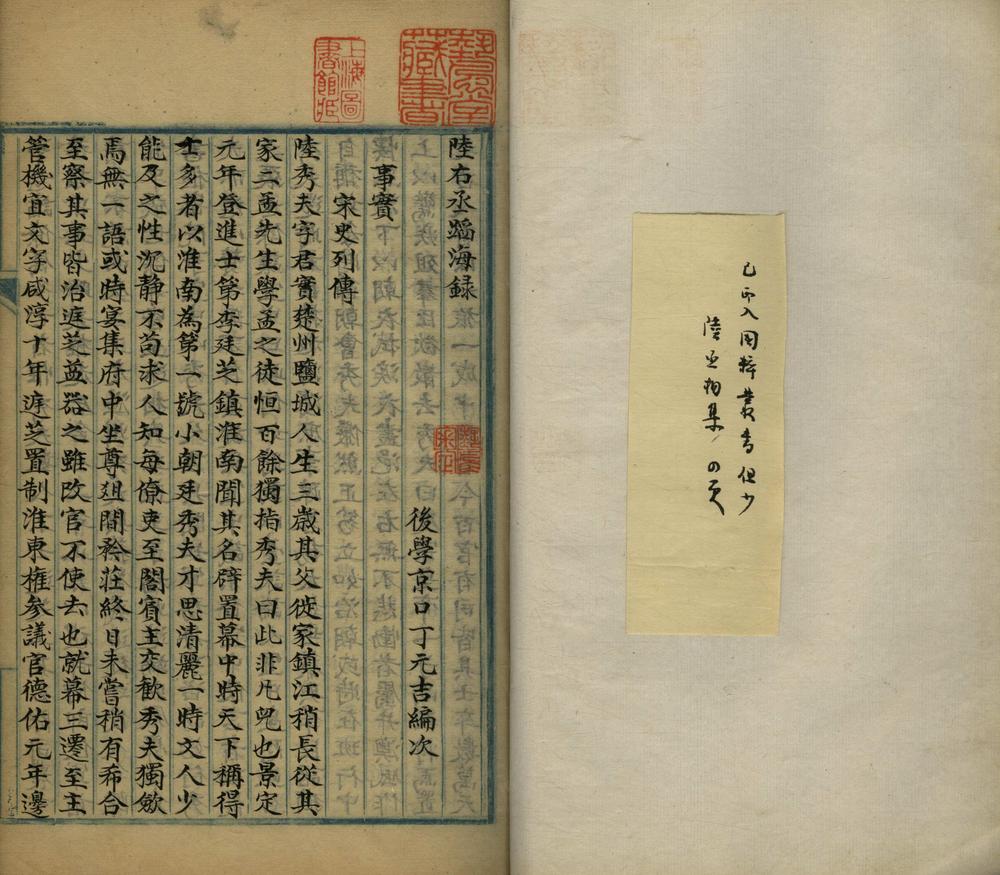 已印入國粹叢書但少
陸丞相集
陸右丞蹈海録
後學京口丁元吉編次
事實
宋史列傳
陸秀夫字君實楚州鹽城人生三歲其父徙家鎮江稍長從其
家二孟先生學孟之徒恒百餘獨指秀夫曰此非凡兒也景定
元年登進士第李廷芝鎮淮南聞其名辟置幕中時天下稱得
士多者以淮南為第一號小朝廷秀夫才思清麗一時文人少
能及之性沉静不苟求人知每僚吏至閣賓主交歡秀夫獨斂
焉無一語或時宴集府中坐尊俎間矜莊終日未嘗稍有希合
至察其事皆治庭芝益器之雖改官不使去也就幕三遷至主
管機宜文字咸淳十年庭芝置制淮東權参議官德佑元年邊
上海圖書館藏
藏書